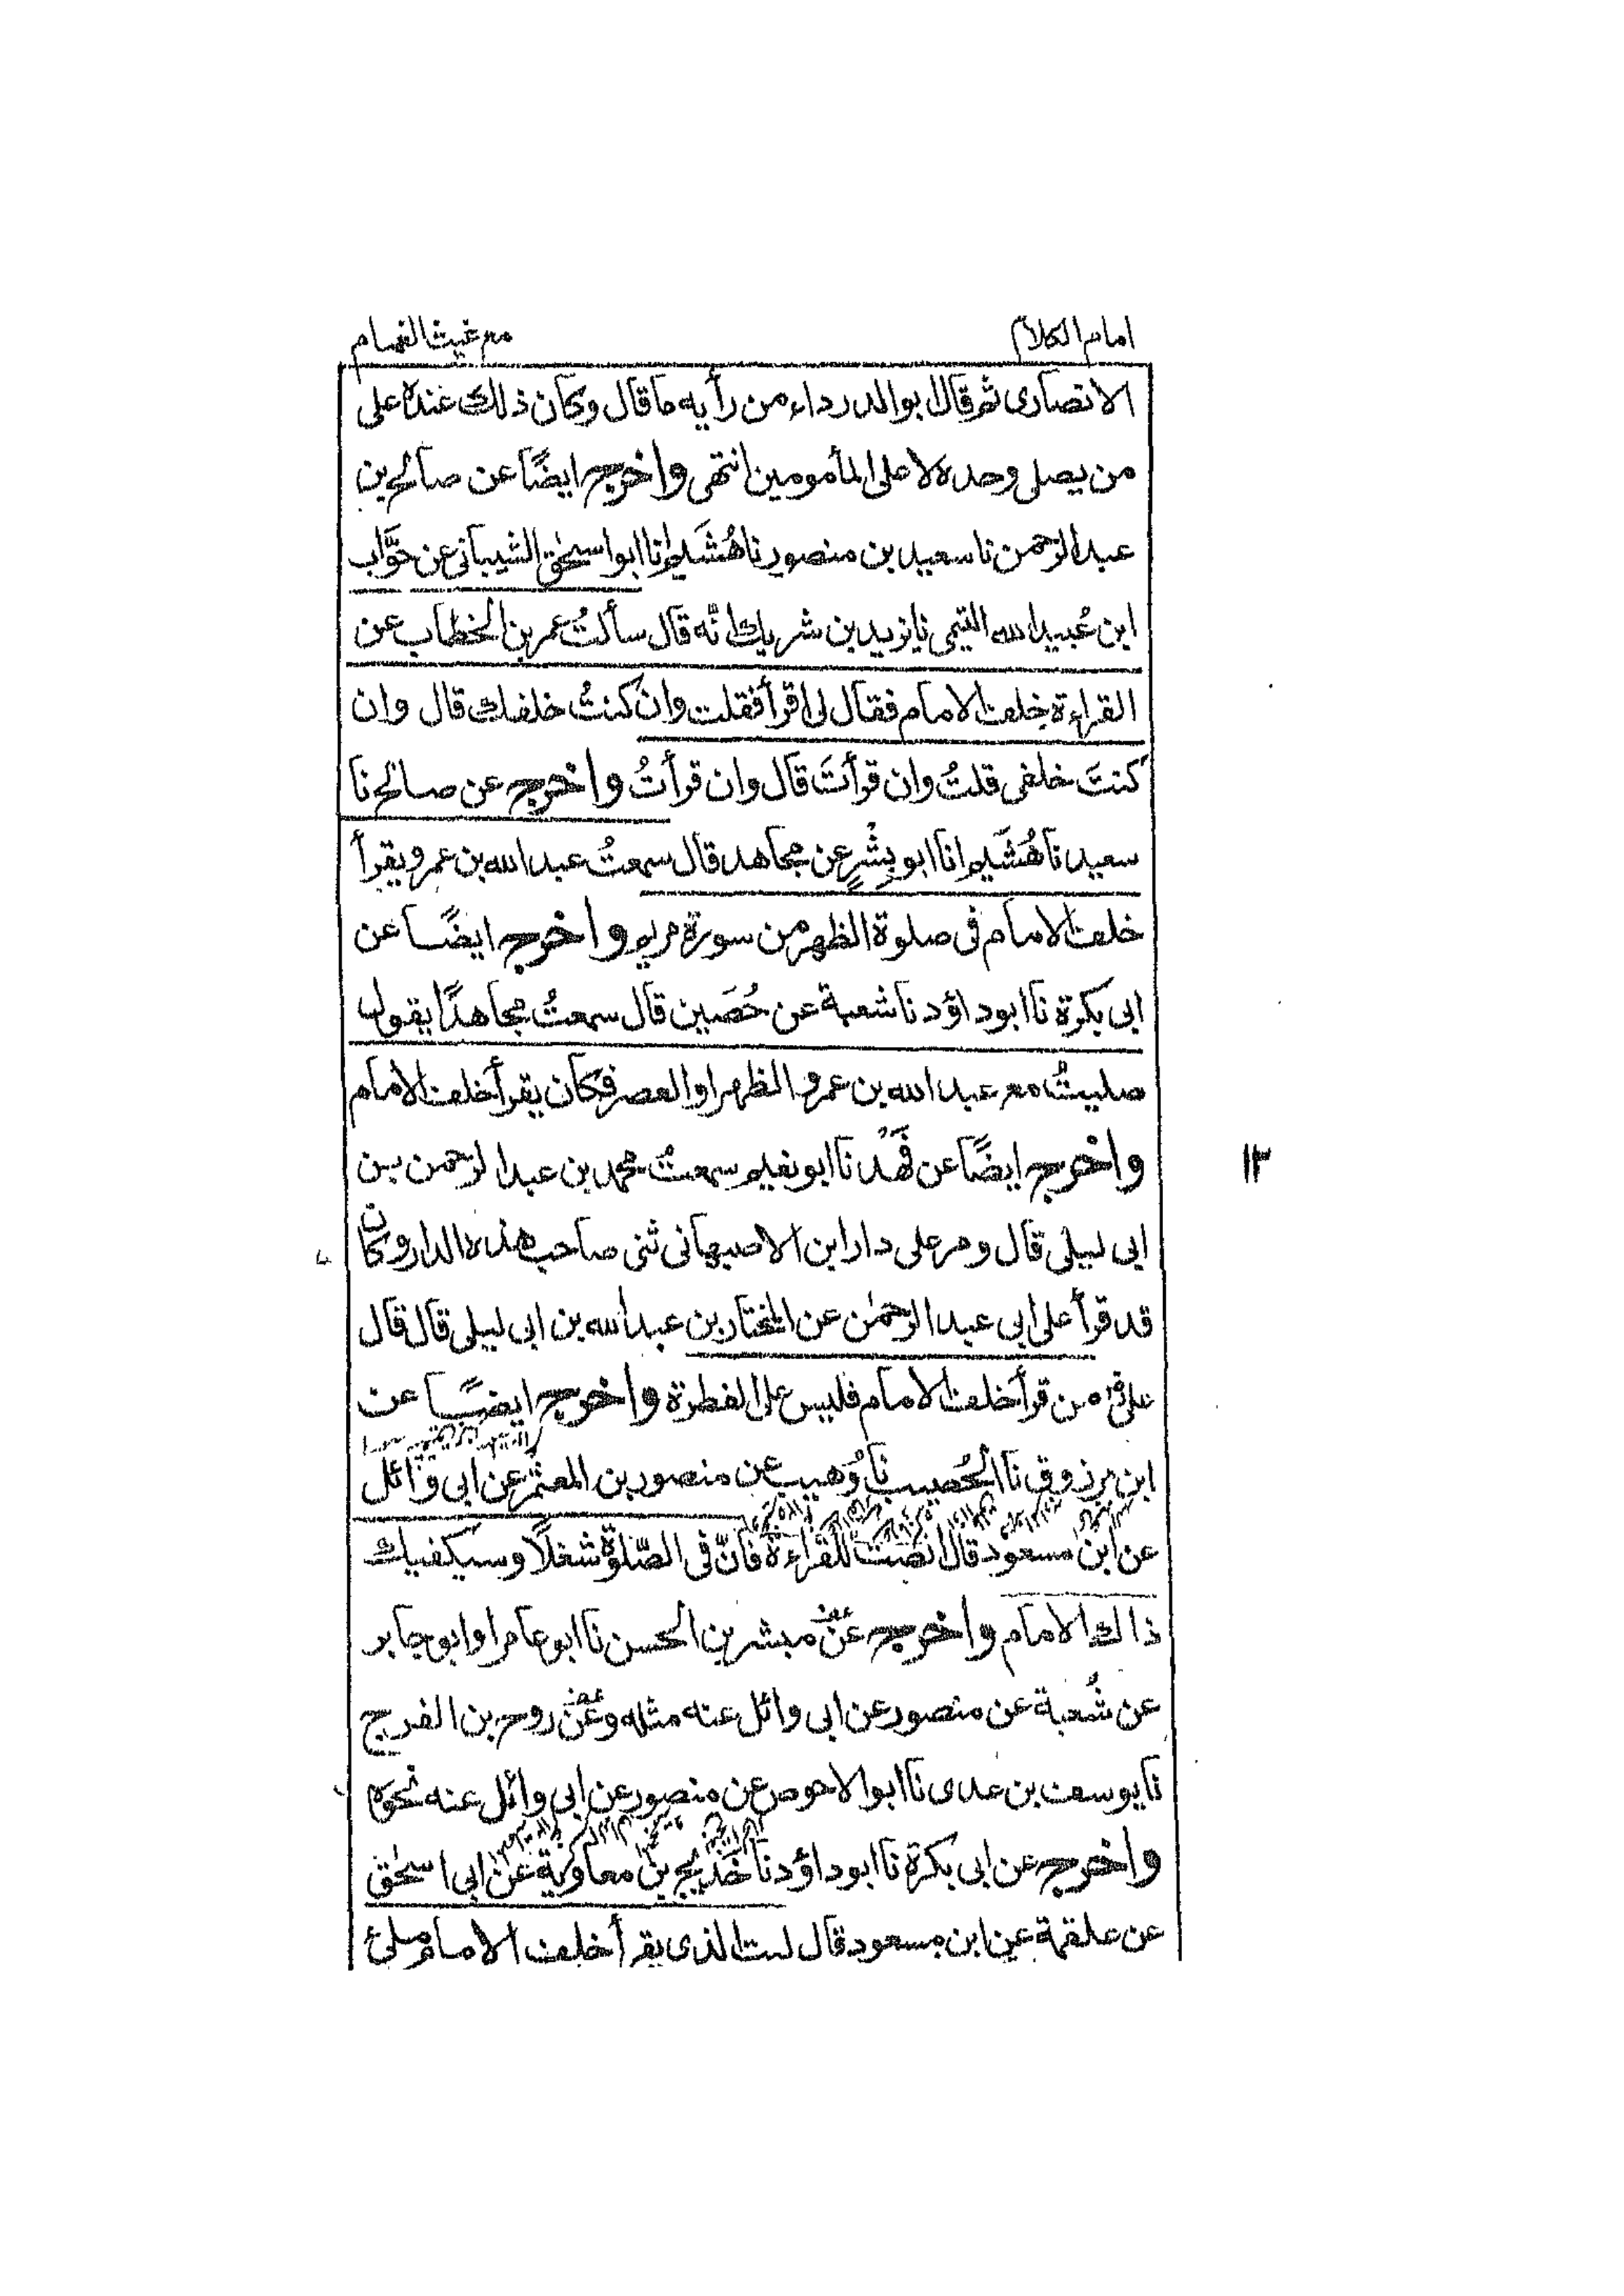 امام الكلام
مع غيث الغمام
الانصارى ثم قال ابو الدرداء من رأيه ما قال وكان ذلك عنده على
من يصلى وحده لا على المأمومين انتهى واخرج ايضًا عن صالح بن
عبد الرحمن نا سعيد بن منصور نا هُشَيم انا ابو اسحٰق الشيبانى عن جوّاب
ابن عُبيد الله التيمى نا يزيد بن شريك انّه قال سألتُ عمر بن الخطاب عن
القراءة خلف الامام فقال لى اقرأ فقلت وان كنتُ خلفك قال وان
كنتَ خلفى قلتُ وان قرأتَ قال وان قرأتُ واخرج عن صالح نا
سعيد نا هُشَيم انا ابو بِشْرٍ عن مجاهد قال سمعتُ عبد الله بن عمرو يقرأ
خلف الامام فى صلوة الظهر من سورة مريم واخرج ايضًا عن
ابى بكرة نا ابو داؤد نا شعبة عن حُصَين قال سمعتُ مجاهدًا يقول
صليتُ مع عبد الله بن عمرو الظهر او العصر فكان يقرأ خلف الامام
واخرج ايضًا عن فَهْد نا ابو نعيم سمعتُ محمد بن عبد الرحمن بن
١٣
ابى ليلى قال ومر على دار ابن الاصبهانى ثنى صاحب هذه الدار وكان
قد قرأ على ابى عبد الرحمٰن عن المختار بن عبد الله بن ابى ليلى قال قال
على من قرأ خلف الامام فليس على الفطرة واخرج ايضًا عن
ابن مرزوق نا الخُصيب نا وُهيب عن منصور بن المعتمر عن ابى وائل
عن ابن مسعود قال انصت للقراءة فانّ فى الصّلوة شغلًا وسيكفيك
ذالك الامام واخرج عن مبشر بن الحسن نا ابو عامر او ابو جابر
عن شُعبة عن منصور عن ابى وائل عنه مثله وعن روح بن الفرج
نا يوسف بن عدى نا ابو الاحوص عن منصور عن ابى وائل عنه نحوه
واخرج عن ابى بكرة نا ابو داؤد نا خديج بن معاوية عن ابى اسحٰق
عن علقمة عن ابن مسعود قال ليت الذى يقرأ خلف الامام ملئ